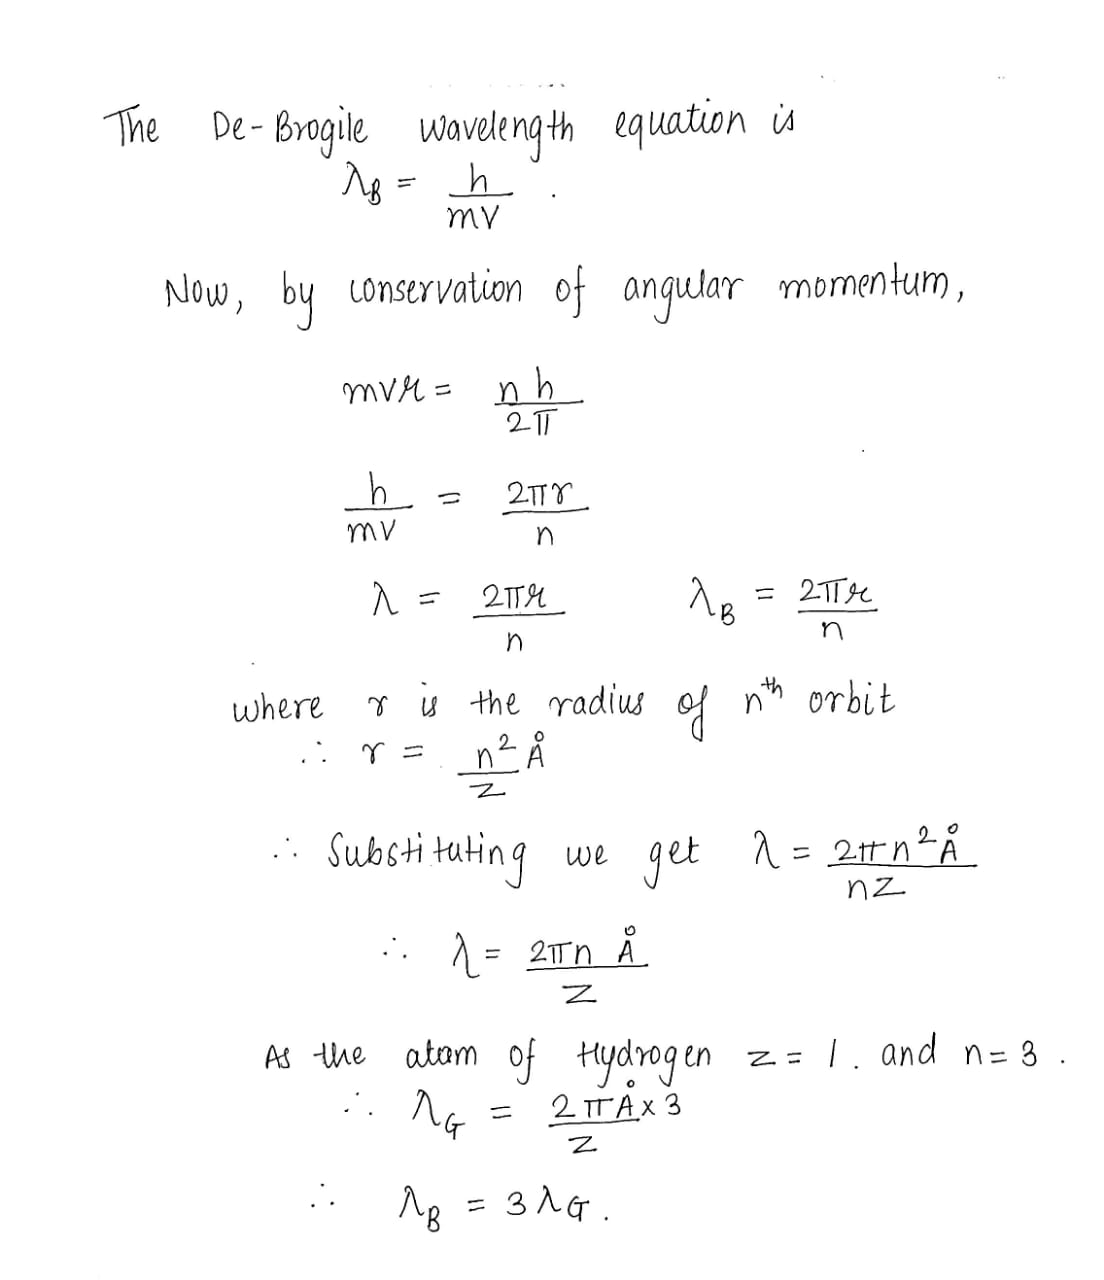 The De-Brogile wavelength equation is
λB = h/mv .
Now, by conservation of angular momentum,
mvr = nh/2π
h/mv = 2πr/n
λ = 2πr/n λB = 2πr/n
where r is the radius of nth orbit
∴ r = n²Å/z
∴ Substituting we get λ = 2πn²Å/nz
∴ λ = 2πn Å/z
As the atom of Hydrogen z = 1. and n = 3 .
∴ λG = 2πÅ x 3/z
∴ λB = 3λG .